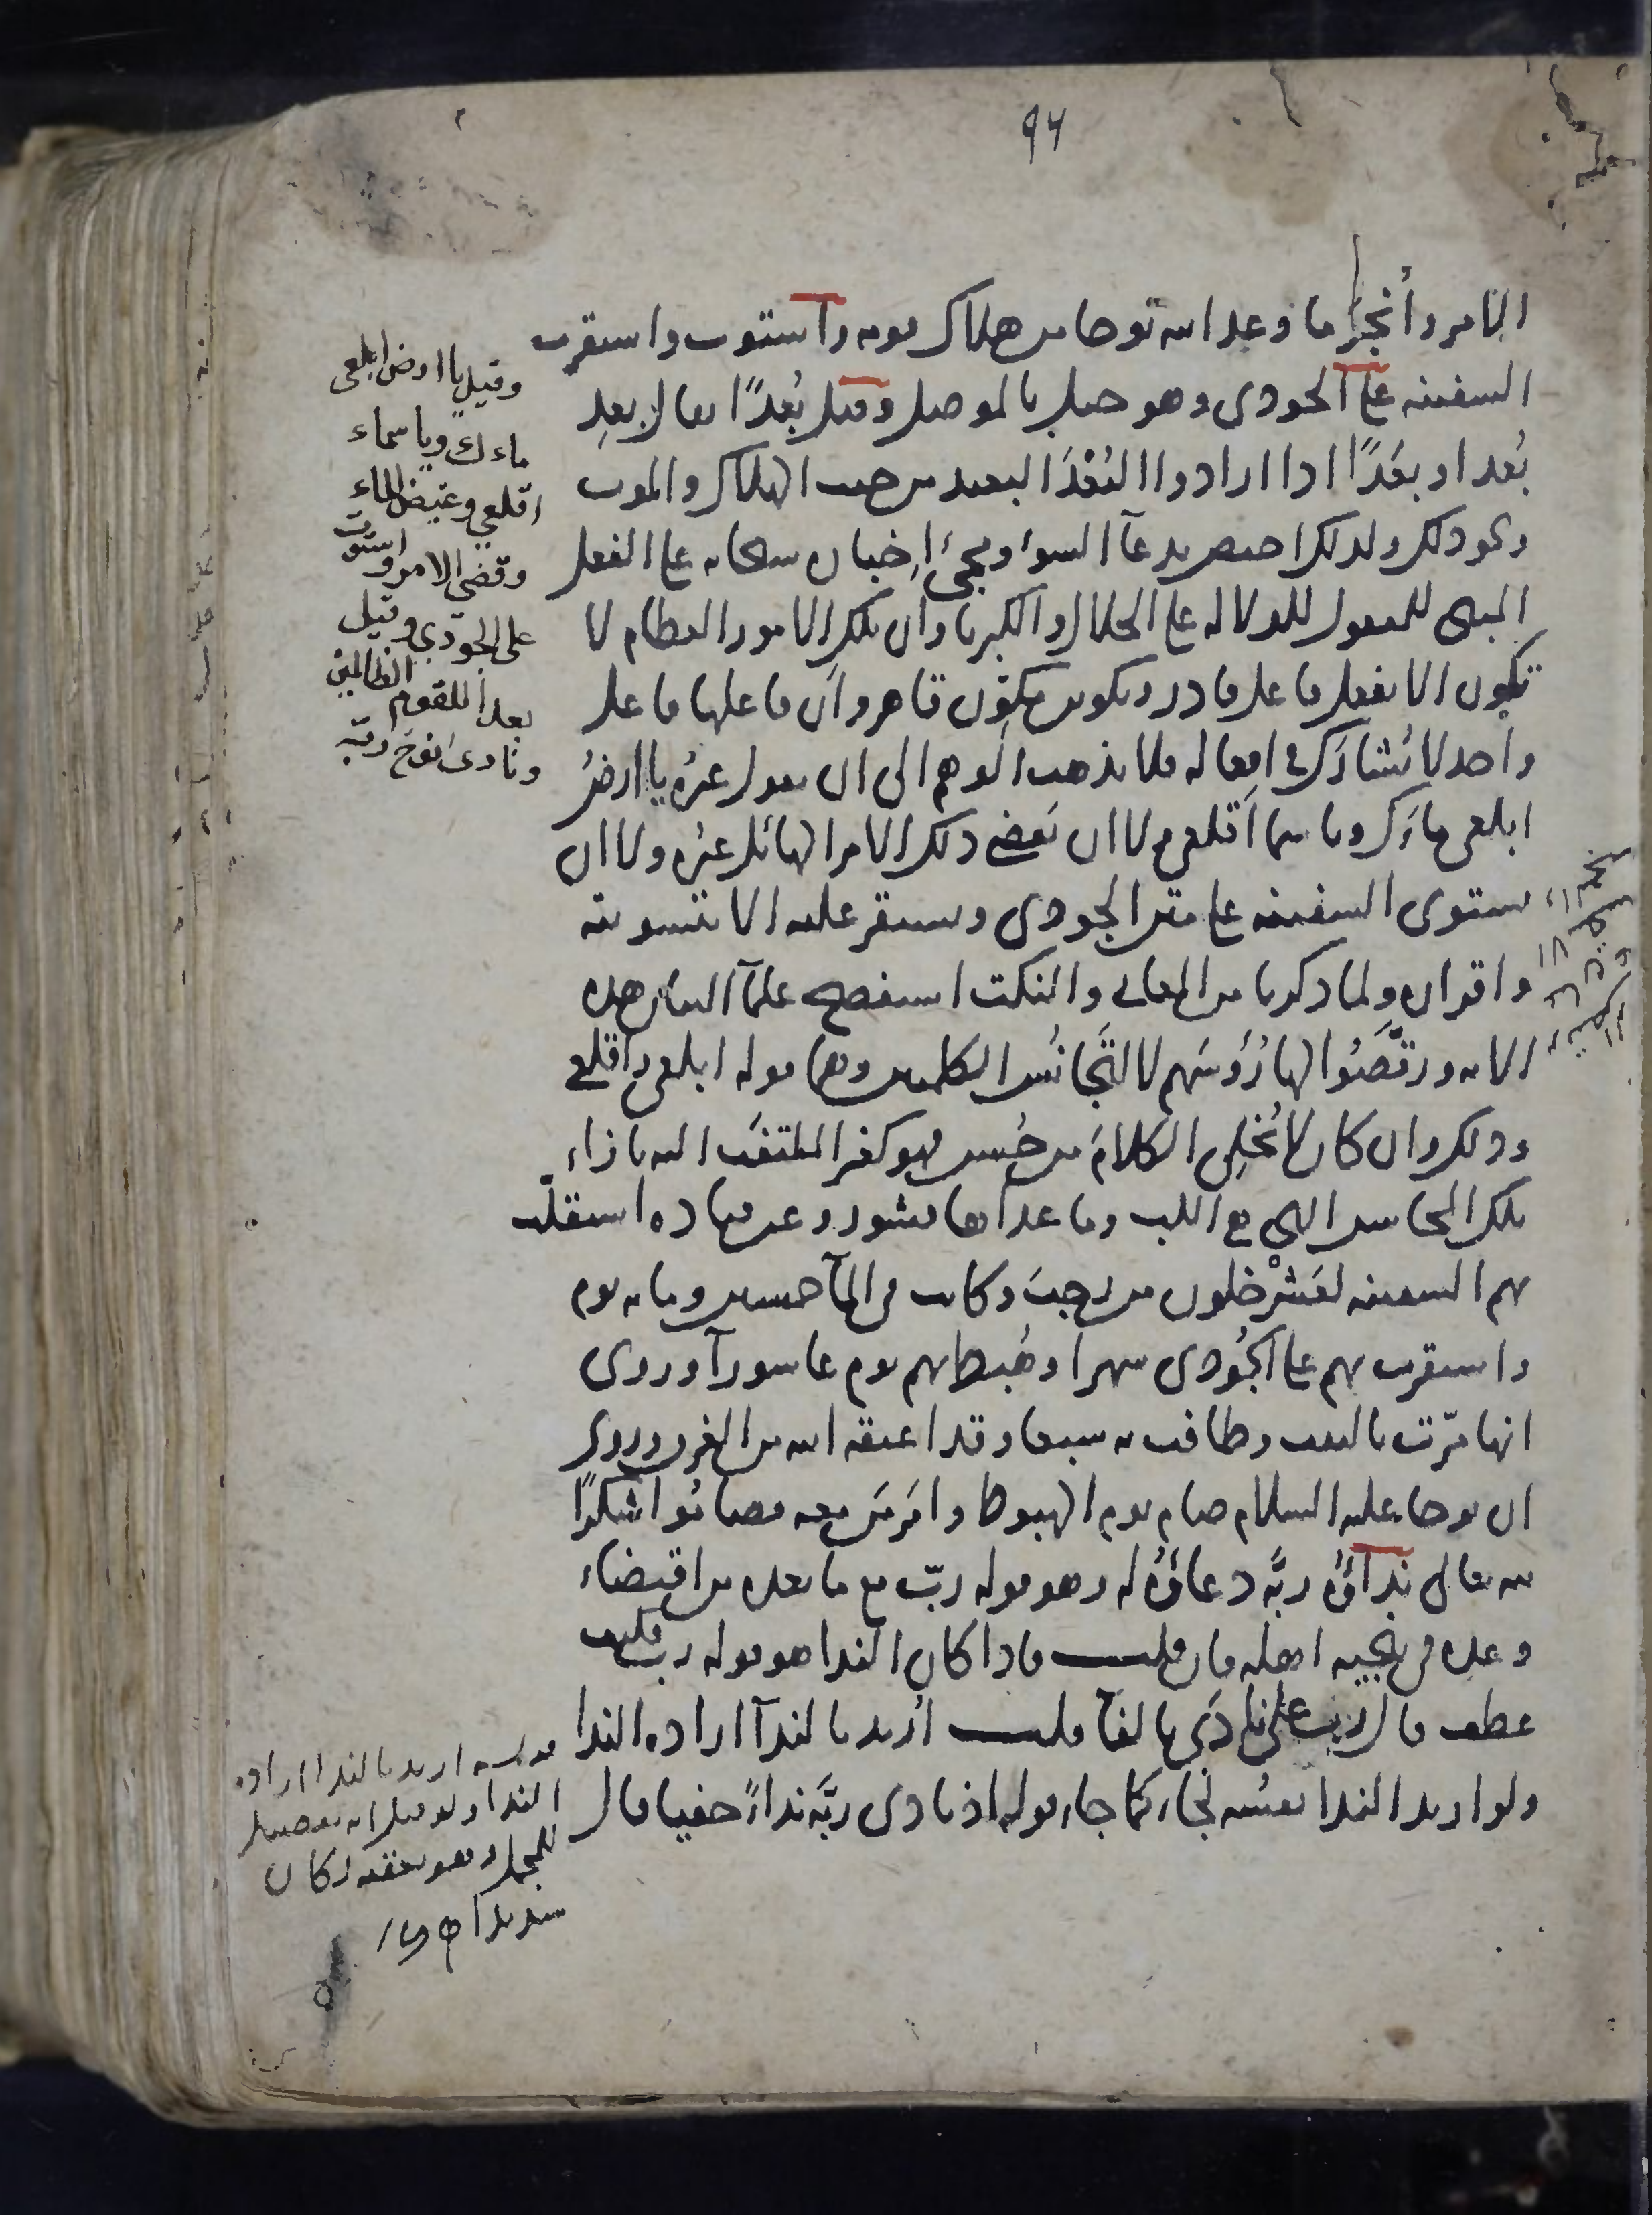 ٩٤
الامر وأنجز ما وعد الله نوحا من هلاك قومه واستوت واستقرت
السفينه على الجودى وهو جبل بالموصل وقيل بُعدًا يقال بعِد
بُعدا وبعَدًا اذا ارادوا البُعْدَ البعيد من حيث الهلاك والموت
ونحو ذلك ولذلك اختص بدعآ السوء ومجئ اخباره سبحانه على الفعل
المبنى للمفعول للدلاله على الجلال والكبريا وان تلك الامور العظام لا
تكون الا بفعل فاعل قادر وتكوين مكوّن قاهر وان فاعلها فاعل
واحد لا يُشارَك فى افعاله فلا يذهب الوهم الى ان يقول غيرُه يا ارضُ
ابلعى ماءك ويا سما اقلعى ولا ان يقضى ذلك الامر الهائل غيره ولا ان
يستوى السفينه على متن الجودى ويستقر عليه الا بتسويته
واقراره ولما ذكرنا من المعانى والنكت استفصح علمآ البيان هذه
الايه ورقّصُوا لها رُؤسَهم لا لتَجانُس الكلمتين وهما قوله ابلعى واقلعى
وذلك وان كان لا يُخلِى الكلامَ من حُسن فهو كغير الملتفت اليه بازاء
تلك المحاسن التى هى اللب وما عداها قشور وعن قتاده استقلّت
بهم السفينه لعَشْر خلون من رجب وكانت فى المآ خمسين ومايه يوم
واستقرت بهم على الجُودى شهرا وهُبط بهم يوم عاشورآ وروى
انها مرّت بالبيت وطافت به سبعا وقد اعتقه الله من الغرق وروى
ان نوحا عليه السلام صام يوم الهبوط وامَر مَن معه فصامُوا شكرًا
لله تعالى نِدآؤُه ربَّه دعاؤُه له وهو قوله ربّ مع ما بعده من اقتضاء
وعده فى تنجيه اهله فان قلت فاذا كان الندا هو قوله رب فكيف
عطف قال رب على نادَى بالفآ قلت اُريد بالندآ ارادهَ الندا
ولو اريد الندا نفسُه لجاء كما جاء قوله اذ نادى ربَّه نداءً خفيا قال
وقيل يا ارض ابلعى
ماءك ويا سماء
اقلعي وغيض الماء
وقضي الامر واستوت
على الجودي وقيل
بعداً للقوم الظالمين
ونادى نوح ربّه
قوله اريد بالندا ارادة
الندا ولو قيل انه تفصيل
للمجمل وهو يعقبه لكان
سديدا